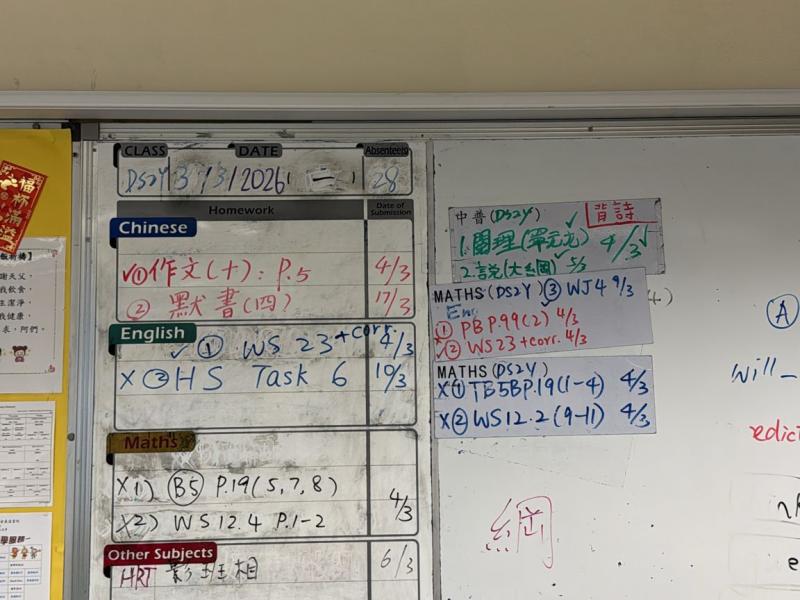 福杯滿溢
CLASS DATE Absentee(s)
DS2Y 3/3/2026 (二) 28
Homework Date of Submission
Chinese
✓①作文(十):P.5 4/3
② 默書(四) 17/3
English
✓① WS 23+corr. 4/3
X②HS Task 6 10/3
Maths
X1) B5 P.19(5,7,8)
X2) WS 12.4 P.1-2 4/3
Other Subjects
HRT 影班相 6/3
中普(DS2Y) ✓ 背詩
4/3✓
5/3
MATHS(DS2Y) ③ WJ4 9/3
① PB P.99(2) 4/3
② WS23+corr. 4/3
MATHS(DS2Y)
X① TB5BP.19(1-4) 4/3
X② WS12.2(9-11) 4/3
綱
A
will
謝天父,
我飲食,
生潔淨,
我健康,
求,阿們。